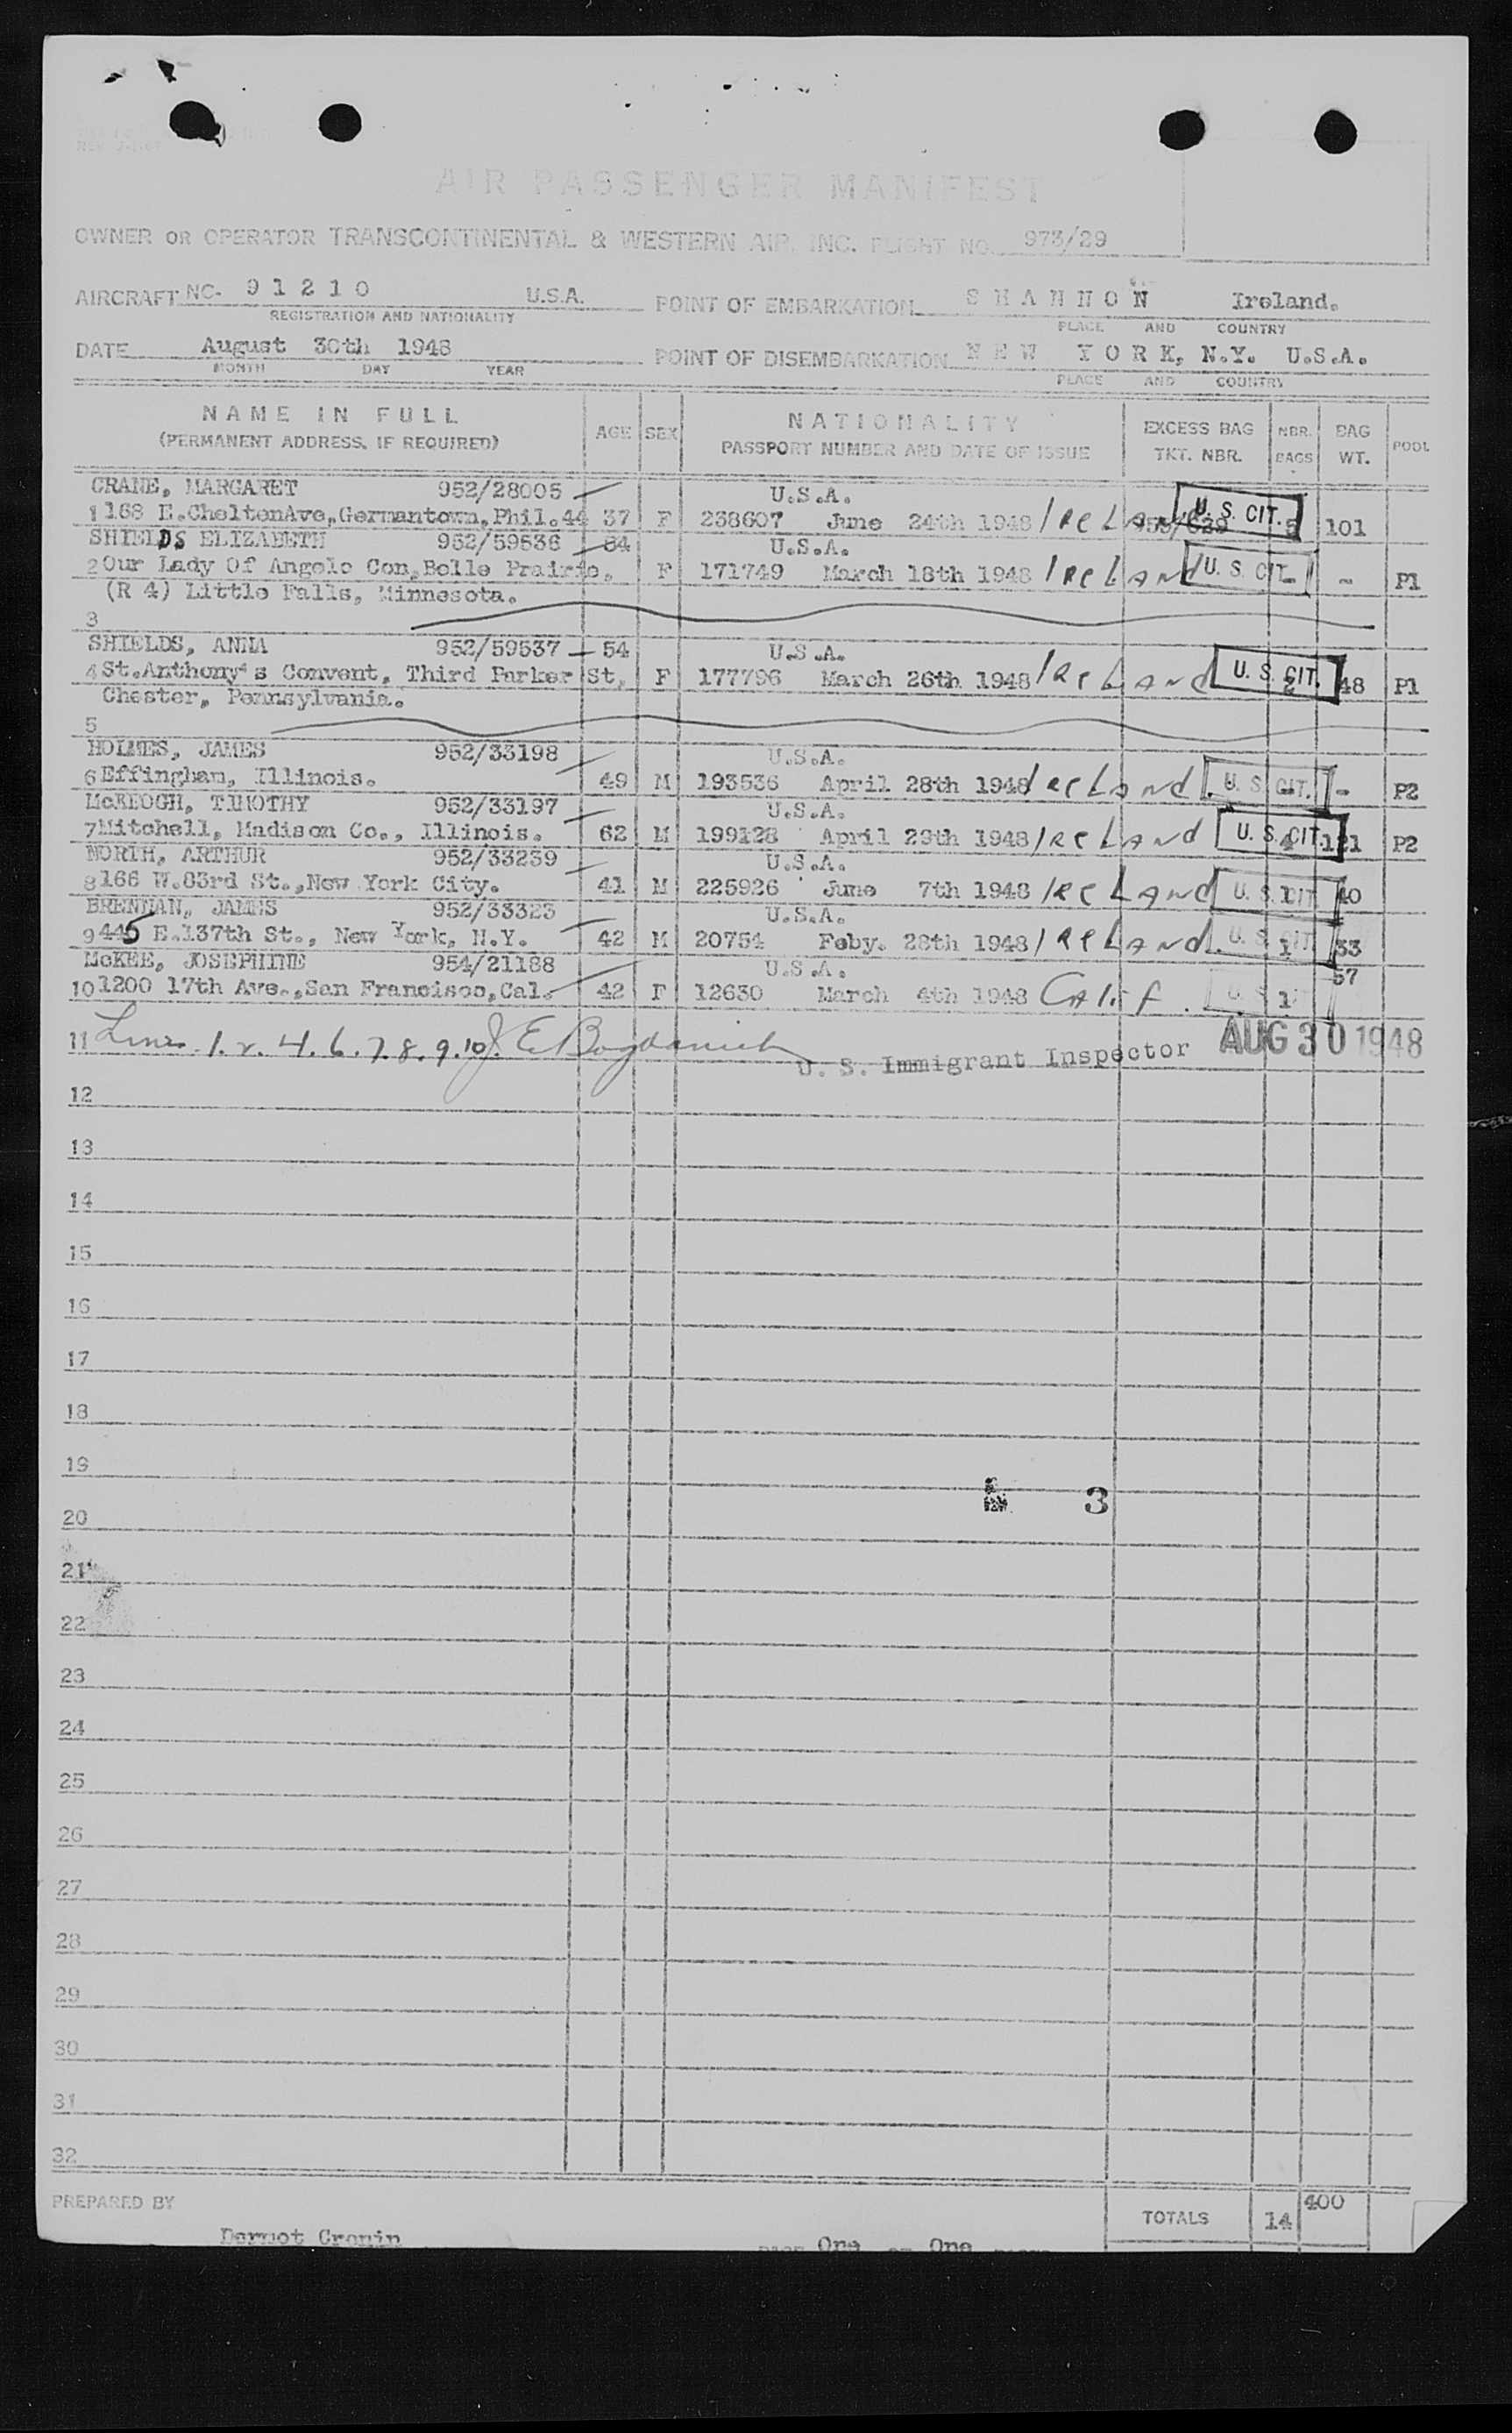 AIR PASSENGER MANIFEST
OWNER OR OPERATOR TRANSCONTINENTAL & WESTERN AIR, INC. FLIGHT NO. 973/29
AIRCRAFT NC- 91210 U.S.A. POINT OF EMBARKATION SHANNON Ireland.
REGISTRATION AND NATIONALITY PLACE AND COUNTRY
DATE August 30th 1948 POINT OF DISEMBARKATION NEW YORK, N.Y. U.S.A.
MONTH DAY YEAR PLACE AND COUNTRY
NAME IN FULL AGE SEX NATIONALITY EXCESS BAG NBR. BAG POOL
(PERMANENT ADDRESS, IF REQUIRED) PASSPORT NUMBER AND DATE OF ISSUE TKT. NBR. BAGS WT.
CRANE, MARGARET 952/28005 U.S.A.
1 168 E.CheltenAve,Germantown,Phil.44 37 F 238607 June 24th 1948 IReLAnd U. S. CIT. 5 101
SHIELDS ELIZABETH 952/59536 54 U.S.A.
2 Our Lady Of Angels Con,Belle Prairie, F 171749 March 18th 1948 IReLAnd U. S. CIT. - - P1
(R 4) Little Falls, Minnesota.
3
SHIELDS, ANNA 952/59537 54 U.S.A.
4 St.Anthony's Convent, Third Parker St, F 177796 March 26th 1948 IReLAnd U. S. CIT. 2 48 P1
Chester, Pennsylvania.
5
HOLMES, JAMES 952/33198 U.S.A.
6 Effingham, Illinois. 49 M 193536 April 28th 1948 IReLAnd U. S. CIT. - P2
McKEOGH, TIMOTHY 952/33197 U.S.A.
7 Mitchell, Madison Co., Illinois. 62 M 199128 April 29th 1948 IReLAnd U. S. CIT. 4 121 P2
NORTH, ARTHUR 952/33239 U.S.A.
8 166 W.83rd St.,New York City. 41 M 225926 June 7th 1948 IReLAnd U. S. CIT 1 40
BRENNAN, JAMES 952/33323 U.S.A.
9 445 E.137th St., New York, N.Y. 42 M 20754 Feby. 28th 1948 IReLAnd U. S. CIT. 1 33
McKEE, JOSEPHINE 954/21188 U.S.A. 57
10 1200 17th Ave.,San Francisco,Cal. 42 F 12630 March 4th 1948 CAlif. U. S. 1
11 Lines 1. 2. 4. 6. 7. 8. 9. 10 J. E. Bogdanich U. S. Immigrant Inspector AUG 30 1948
12
13
14
15
16
17
18
19
3
20
21
22
23
24
25
26
27
28
29
30
31
32
PREPARED BY TOTALS 14 400
Dermot Cronin One One